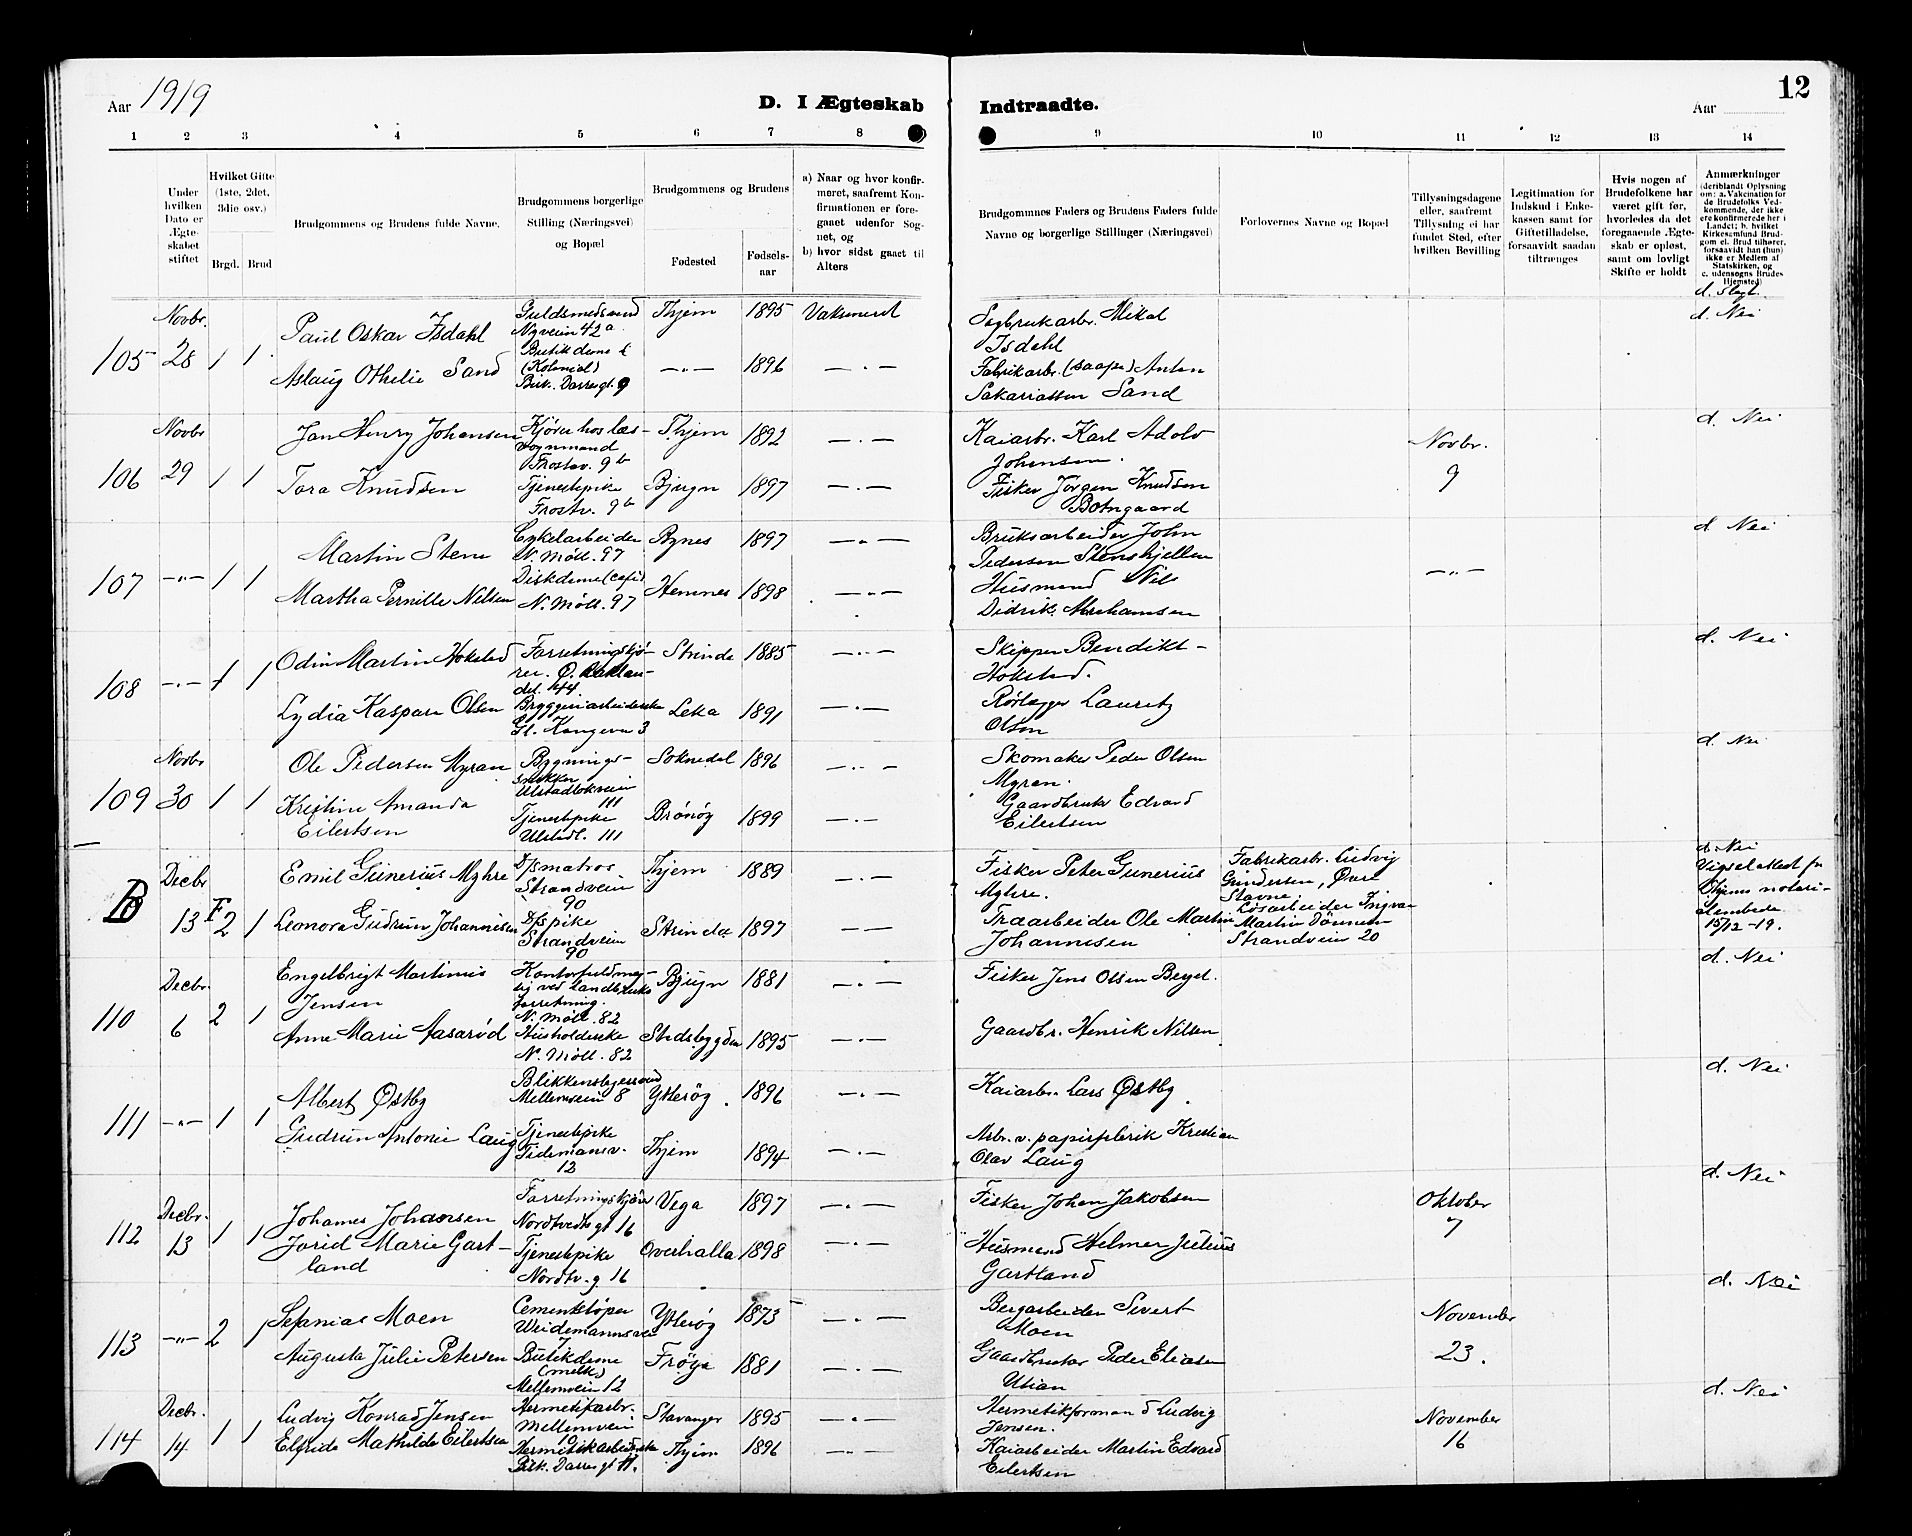 Aar 1919
D. I Ægteskab Indtraadte.
Aar
12
1 2 3 4 5 6 7 8 9 10 11 12 13 14
Under hvilken Dato er Ægteskabet stiftet
Hvilket Gifte (1ste, 2det, 3die osv.)
Brgd. Brud
Brudgommens og Brudens fulde Navne.
Brudgommens borgerlige Stilling (Næringsvei) og Bopæl
Brudgommens og Brudens
Fødested
Fødsels-aar
a) Naar og hvor konfirmeret, saafremt Konfirmationen er foregaaet udenfor Sognet, og
b) hvor sidst gaaet til Alters
Brudgommes Faders og Brudens Faders fulde Navne og borgerlige Stillinger (Næringsvei)
Forlovernes Navne og Bopæl
Tillysningsdagene eller, saafremt Tillysning ei har fundet Sted, efter hvilken Bevilling
Legitimation for Indskud i Enkekassen samt for Giftetilladelse, forsaavidt saadan tiltrænges
Hvis nogen af Brudefolkene har været gift før, hvorledes da det foregaaende Ægteskab er opløst, samt om lovligt Skifte er holdt
Anmærkninger
(deriblandt Oplysning om: a. Vakcination for de Brudefolks Vedkommende, der ikke ere konfirmerede her i Landet; b. hvilket Kirkesamfund Brudgom el. Brud tilhører, forsaavidt han (hun) ikke er Medlem af Statskirken, og c. udensogns Brudes Hjemsted)
d. Slegt.
105 Novbr. 28 1 1
Paul Oskar Isdahl
Guldsmedsvend
Nyveien 42a
Thjem 1895 Vaksinert
Sagbrukarbr. Mikal
Isdahl
d. Nei
Aslaug Othelie Sand
Butikdame
(Kolonial)
Bisk. Darresgt. 9
—„— 1896 —„—
Fabrikarbr. (saape) Anton
Sakariassen Sand
106 Novbr 29 1 1
Jan Henry Johansen
Kjører hos læs-
vognmand
Frostav. 9b
Thjem 1892 —„—
Kaiarbr. Karl Adolv
Johansen.
Novbr.
9
d. Nei
Tora Knudsen
Tjenestepike
Frostv. 9b
Bjugn 1897 —„—
Fisker Jørgen Knudsen
Botngaard
107 —„— 1 1
Martin Stene
Cykelarbeider
N. Møll. 97
Bynes 1897 —„—
Bruksarbeider John
Pedersen
—„—
d. Nei
Martha Pernille Nilsen
Diskdame (café)
N. Møll. 97
Hemnes 1898 —„—
Husmand Nils
Didrik Abrahamsen
108 —„— 1 1
Odin Martin Hokstad
Forretningskjø-
rer.
Strinda 1885 —„—
Skipper Bendikt
Hokstad.
d. Nei
Lydia Kaspara Olsen
Bryggeriarbeiderske
Gl. Kongevei 3
Leka 1891 —„—
Rørlægger Lauritz
Olsen
109 Novbr 30 1 1
Ole Pedersen Myran
Bygnings-
snekker
111
Soknedal 1896 —„—
Skomaker Peder Olsen
Myran.
d. Nei
Kristine Amanda
Eilertsen
Tjenestepike
111
Brønøy 1899 —„—
Gaardbruker Edvard
Eilertsen
B Decbr 13 F 2 1
Emil Gunerius Myhre
D/smatros
Strandveien
90
Thjem 1889
Fisker Peter Gunerius
Myhre.
Fabrikarbr. Ludvig
Gundersen, Øvre
Stavne,
d. Nei
Vigselattest fra
Thjems notari-
15/12-19.
Leonora Gudrun Johannesen
D/spike
Strandveien
90
Strinda 1897
Traarbeider Ole Martin
Johannesen
Løsarbeider Ingvar
Martin Dønnem
Strandveien 20
110 Decbr. 6 2 1
Engelbrigt Martinus
Jensen
Kontorfuldmæg-
tig ved landbruks
forretning.
N. Møll. 82
Bjugn 1881 —„—
Fisker Jens Olsen
d. Nei
Anne Marie Aasarød
Husholderske
N. Møll. 82
Stadsbygden 1895 —„—
Gaardbr. Henrik Nilsen
111 —„— 1 1
Albert Østby
Blikkenslagersvend
Mellemveien 8
Ytterøy 1896 —„—
Kaiarbr. Lars Østby
d. Nei
Gudrun Antonie Laug
Tjenestepike
Tidemansv.
12
Thjem 1894 —„—
Arbr. v. papirfabrik Kristian
Olav Laug
112 Decbr. 13 1 1
Johannes Johansen
Forretningskjører
Nordtvedts gt 16
Vega 1897 —„—
Fisker Johan Jakobsen
Oktober
7
d. Nei
Jorid Marie Gart-
land
Tjenestepike
Nordtv. g. 16
Overhalla 1898 —„—
Husmand Helmer Julius
Gartland
113 —„— 2 1
Sefanias Moen
Cementstøper
Weidemannsvei
Ytterøy 1873 —„—
Bergarbeider Sivert
Moen
November
23.
d. Nei
Augusta Julie Petersen
Butikdame
(melk)
Mellemveien 12
Frøya 1881 —„—
Gaardbruker Peder Eliasen
Utian
114 Decbr. 14 1 1
Ludvig Konrad Jensen
Hermetikarbr.
Mellemveien
10
Stavanger 1895 —„—
Hermetikformand Ludvig
Jensen.
November
16
d. Nei
Elfrida Mathilde Eilertsen
Hermetikarbeiderske
Bisk. Darresgt 11.
Thjem 1896 —„—
Kaiarbeider Martin Edvard
Eilertsen